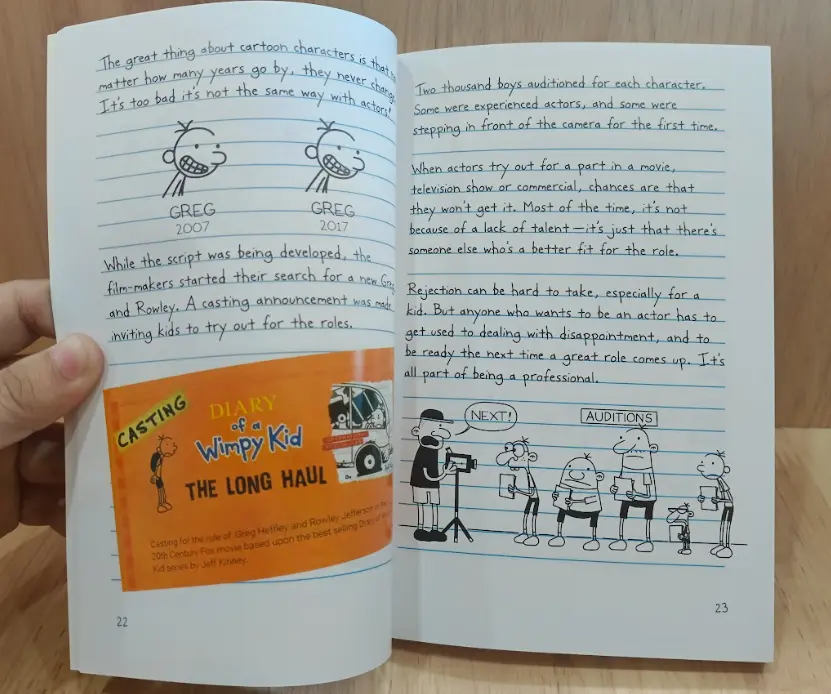 The great thing about cartoon characters is that
matter how many years go by, they never
It's too bad it's not the same way with actors!
GREG
2007
GREG
2017
While the script was being developed, the
film-makers started their search for a new
and Rowley. A casting announcement was
inviting kids to try out for the roles.
CASTING
DIARY
of a
Wimpy Kid
THE LONG HAUL
Casting for the role of Greg Heffley and Rowley Jefferson in the
20th Century Fox movie based upon the best selling Diary of
Kid series by Jeff Kinney.
22
Two thousand boys auditioned for each character.
Some were experienced actors, and some were
stepping in front of the camera for the first time.
When actors try out for a part in a movie,
television show or commercial, chances are that
they won't get it. Most of the time, it's not
because of a lack of talent—it's just that there's
someone else who's a better fit for the role.
Rejection can be hard to take, especially for a
kid. But anyone who wants to be an actor has to
get used to dealing with disappointment, and to
be ready the next time a great role comes up. It's
all part of being a professional.
NEXT!
AUDITIONS
23